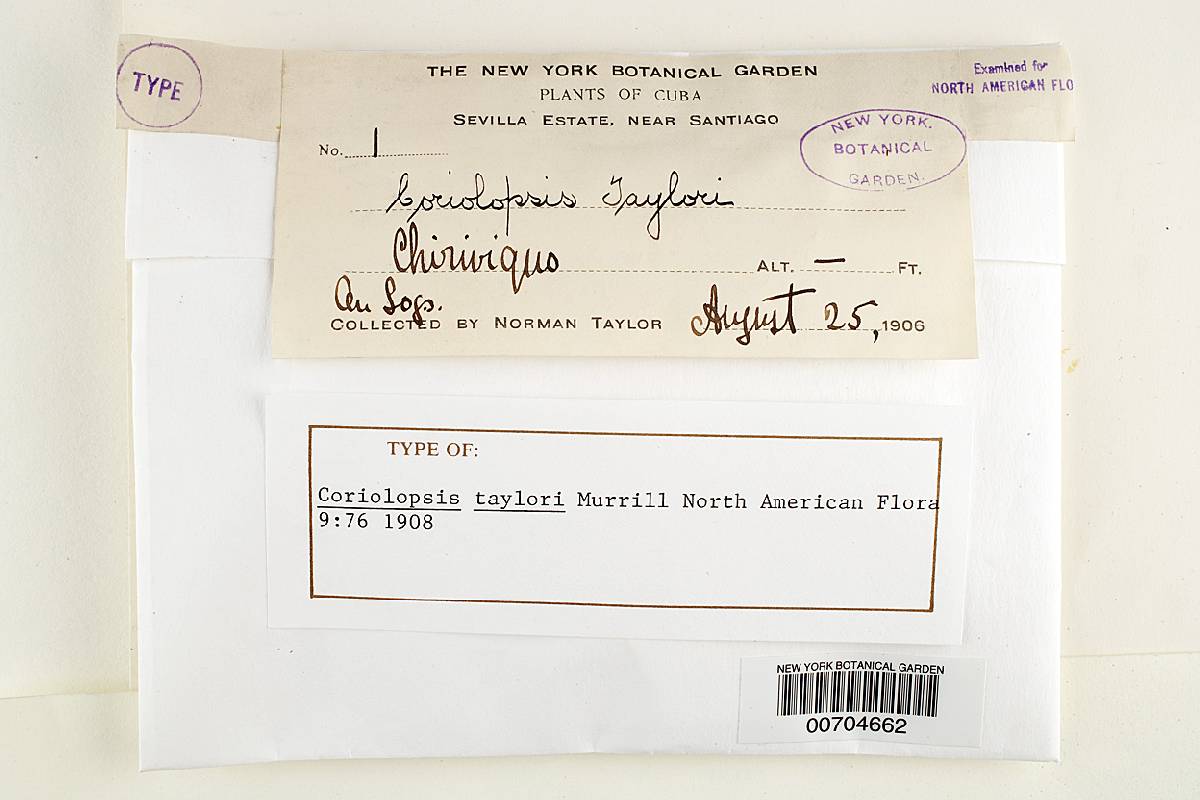 TYPE
THE NEW YORK BOTANICAL GARDEN
PLANTS OF CUBA
SEVILLA ESTATE, NEAR SANTIAGO
Examined for
NORTH AMERICAN FLO
NEW YORK.
BOTANICAL
GARDEN.
No. 1
Coriolopsis Taylori
Chiriviquo
ALT. — FT.
On Logs.
COLLECTED BY NORMAN TAYLOR August 25, 1906
TYPE OF:
Coriolopsis taylori Murrill North American Flora
9:76 1908
NEW YORK BOTANICAL GARDEN
00704662